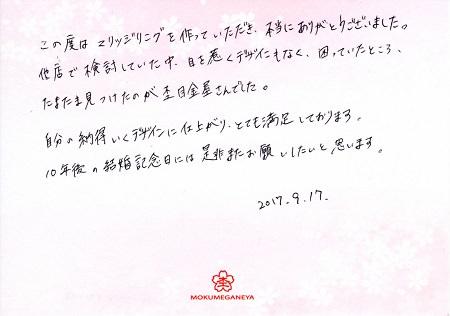 この度はマリッジリングを作っていただき、本当にありがとうございました。
他店で検討していた中、目を惹くデザインもなく、困っていたところ、
たまたま見つけたのが杢目金屋さんでした。
自分の納得いくデザインに仕上がり、とても満足しております。
10年後の結婚記念日には是非またお願いしたいと思います。
2017.9.17.
杢
MOKUMEGANEYA